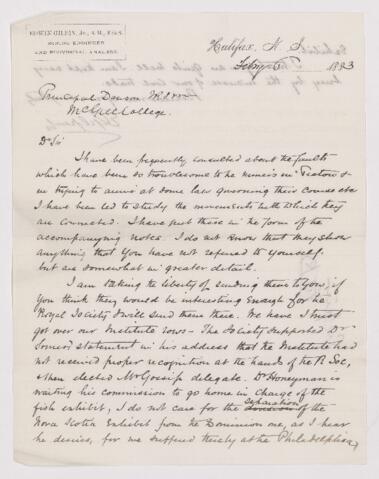 EDWIN GILPIN, Jr., A.M., F.G.S.
MINING ENGINEER
AND PROVINCIAL ANALYST.
Halifax, N. S.
Feby 5th 1883
Principal Dawson
McGill College.
Dr Sir
I have been frequently consulted about the faults
which have been so troublesome to the miners in Pictou &
in trying to arrive at some law governing their course etc
I have been led to study the movements with which they
are connected. I have put these in the form of the
accompanying notes. I do not know that they show
anything that you have not referred to yourself.
but are somewhat in greater detail.
I am taking the liberty of sending them to you, if
you think they would be interesting enough for the
Royal Society I will send them there. We have I trust
got over our Institute rows - The Society supported Dr
Somers statement in his address that the Institute had
not received proper recognition at the hands of the R. Soc,
& then elected Mr Gossip delegate. Dr Honeyman is
waiting his commission to go home in charge of the
fish exhibit, I do not care for the separation of the
Nova Scotia Exhibit from the Dominion one, as I hear
he desires, for we suffered thereby at the Philadelphia